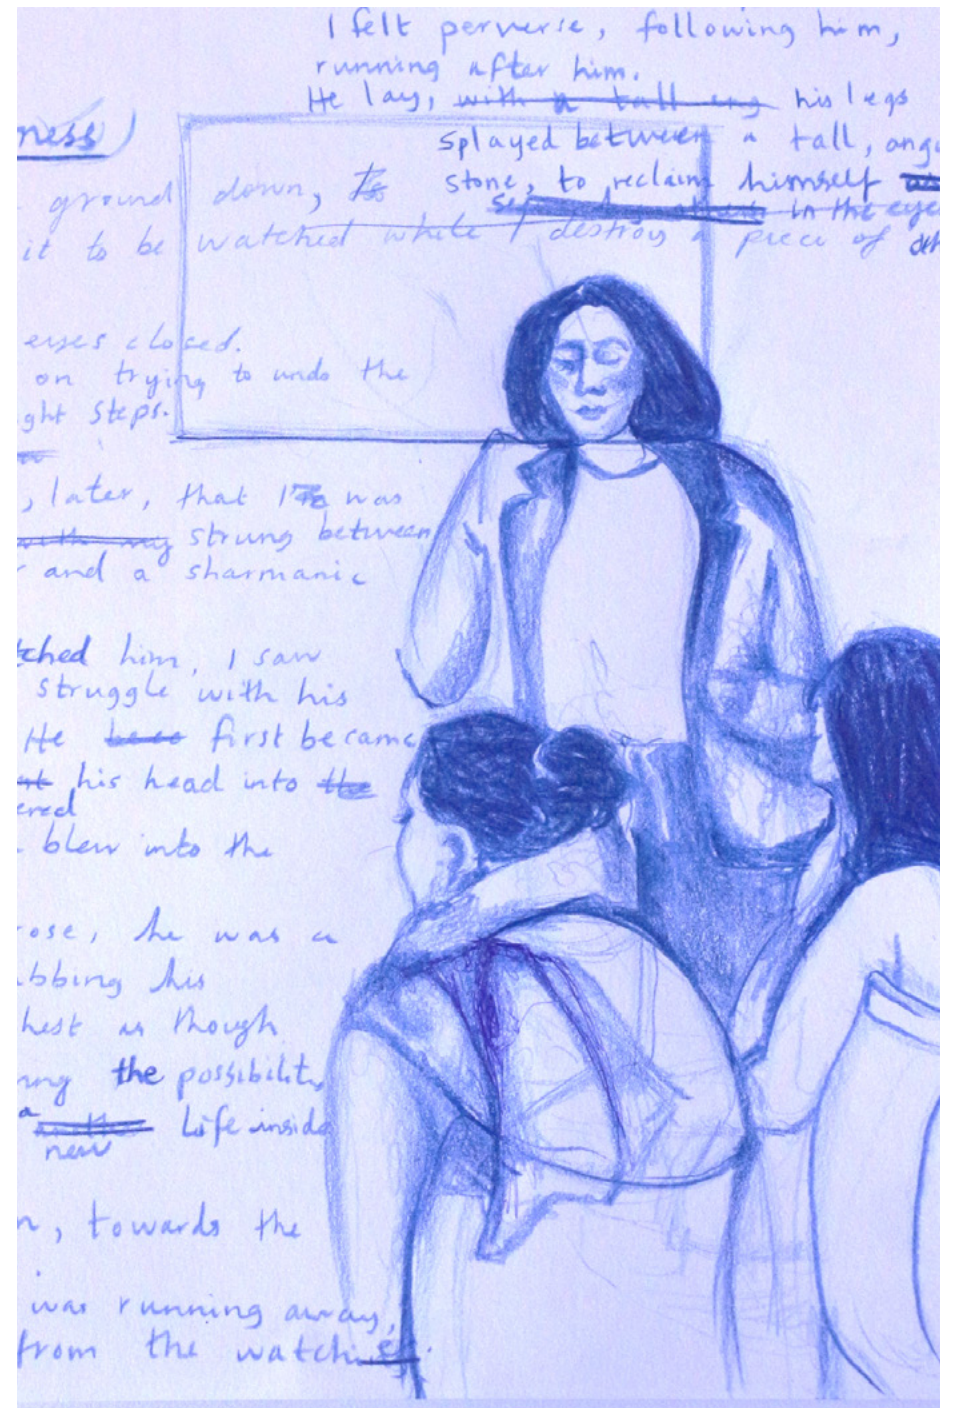 I felt perverse, following him,
running after him.
He lay, with a tall ang his legs
splayed between a tall, angu
ness)
stone, to reclaim himself
ground down, To
in the eyes
it to be watched while I destroy a piece of
eyes closed.
on trying to undo the
ght steps.
, later, that I was
with my strung between
and a sharmanic
tched him, I saw
struggle with his
He been first became
his head into the
ered
blew into the
rose, he was a
bbing his
hest as though
ng the possibility
a
Life inside
new
n, towards the
was running away,
from the watch